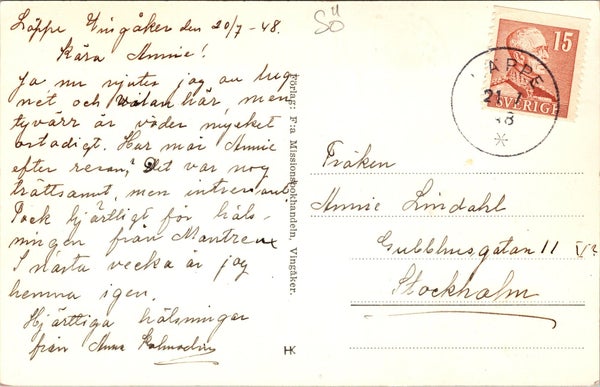 Läppe Vingåker den 20/7 - 48.
Kära Annie!
Ja nu njuter jag av lug
net och vilan här, men
tyvärr är väder mycket
ostadigt. Hur mår Annie
efter resan? Det var nog
tröttsamt, men intressant.
Tack hjärtligt för häls-
ningen från Montreux
I nästa vecka är jag
hemma igen.
Hjärtliga hälsningar
från Anna
Förlag: F:a Missionsbokhandeln, Vingåker.
HK
SÖ
15
SVERIGE
LÄPPE
21.7
48
Fröken
Annie Lindahl
Gubbhusgatan 11
Stockholm